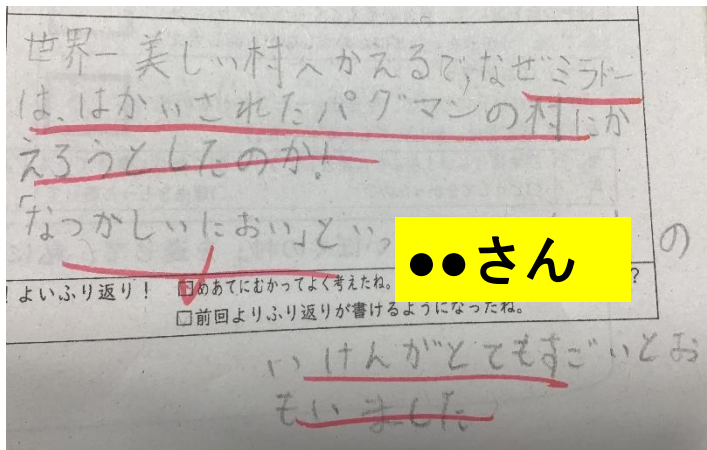 世界一美しい村へかえるで、なぜミラドー
は、はかいされたパグマンの村にか
えろうとしたのか!
「なつかしいにおい」といっ
●●さん
の
！よいふり返り！
□めあてにむかってよく考えたね。
?
□前回よりふり返りが書けるようになったね。
いけんがとてもすごいとお
もいました